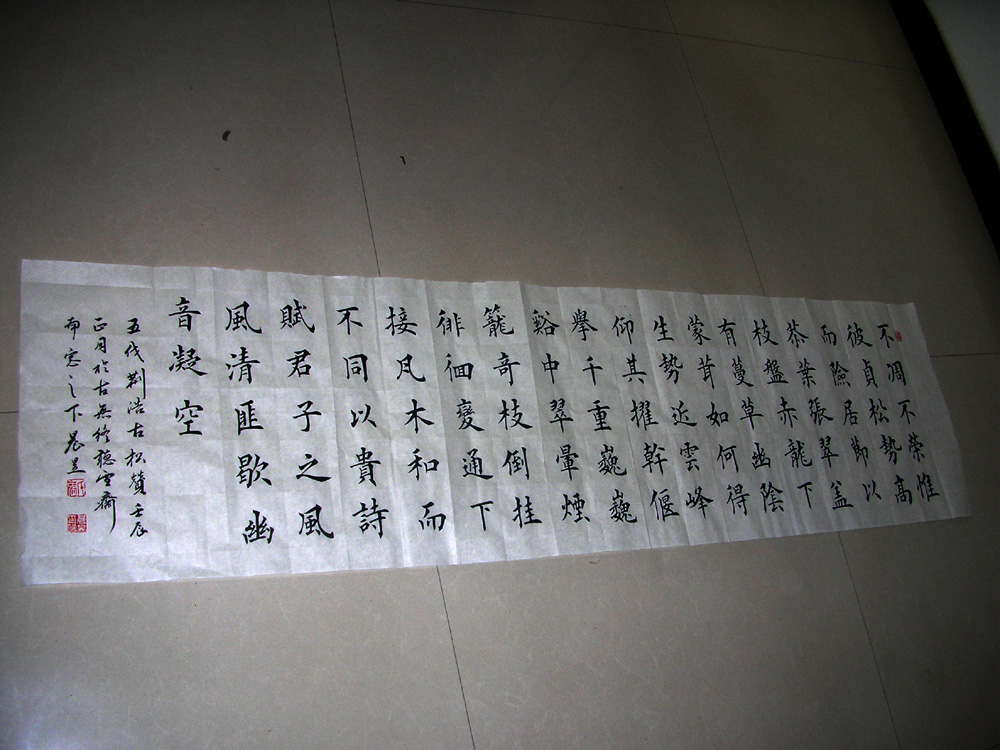 不凋不榮惟
彼貞松勢高
而險居節以
恭葉張翠盖
枝盤赤龍下
有蔓草幽陰
蒙茸如何得
生勢近雲峰
仰其擢幹偃
舉千重巍巍
谿中翠暈煙
籠奇枝倒挂
徘徊變通下
接凡木和而
不同以貴詩
賦君子之風
風清匪歇幽
音凝空
五代荆浩古松贊壬辰
正月於古無終聽雪齋
南窓之下晨